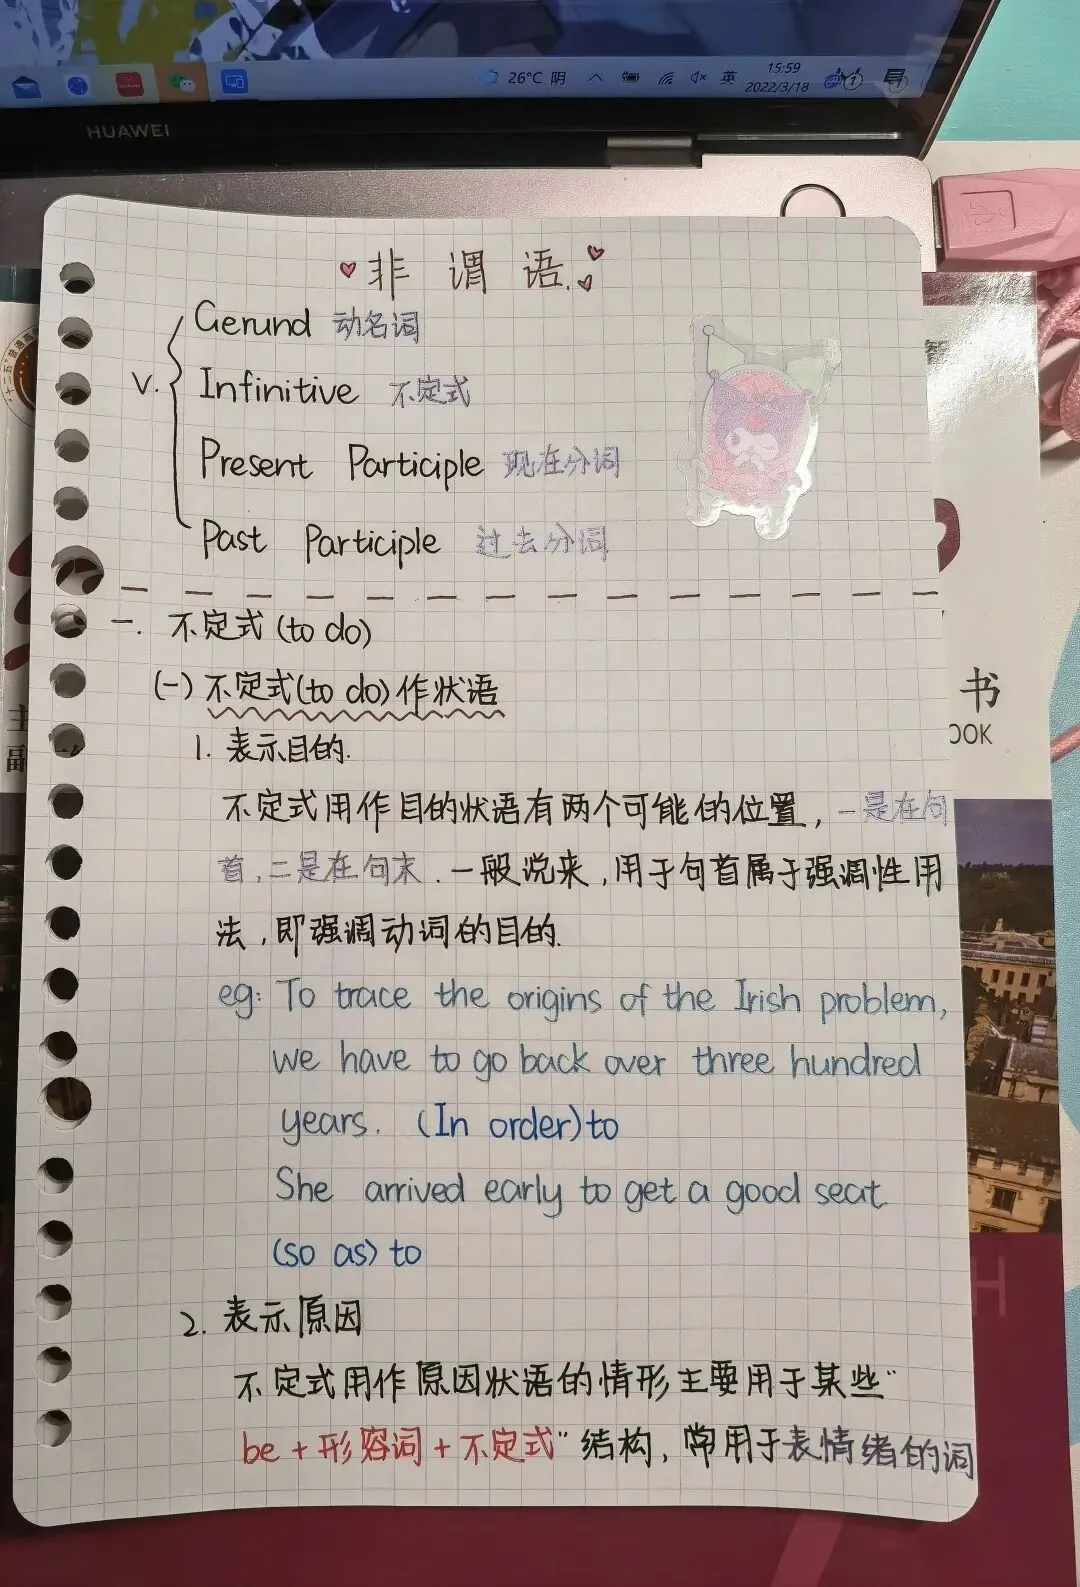 26°C 阴
英
15:59
2022/3/18
HUAWEI
非谓语.
v.
Gerund 动名词
Infinitive 不定式
Present Participle 现在分词
Past Participle 过去分词
一. 不定式(to do)
(一)不定式(to do)作状语
1. 表示目的.
不定式用作目的状语有两个可能的位置,一是在句
首,二是在句末.一般说来,用于句首属于强调性用
法,即强调动词的目的.
eg: To trace the origins of the Irish problem,
we have to go back over three hundred
years. (In order)to
She arrived early to get a good seat
(so as) to
2. 表示原因
不定式用作原因状语的情形主要用于某些"
be+形容词+不定式"结构,常用于表情绪的词
书
OOK
主
副
H